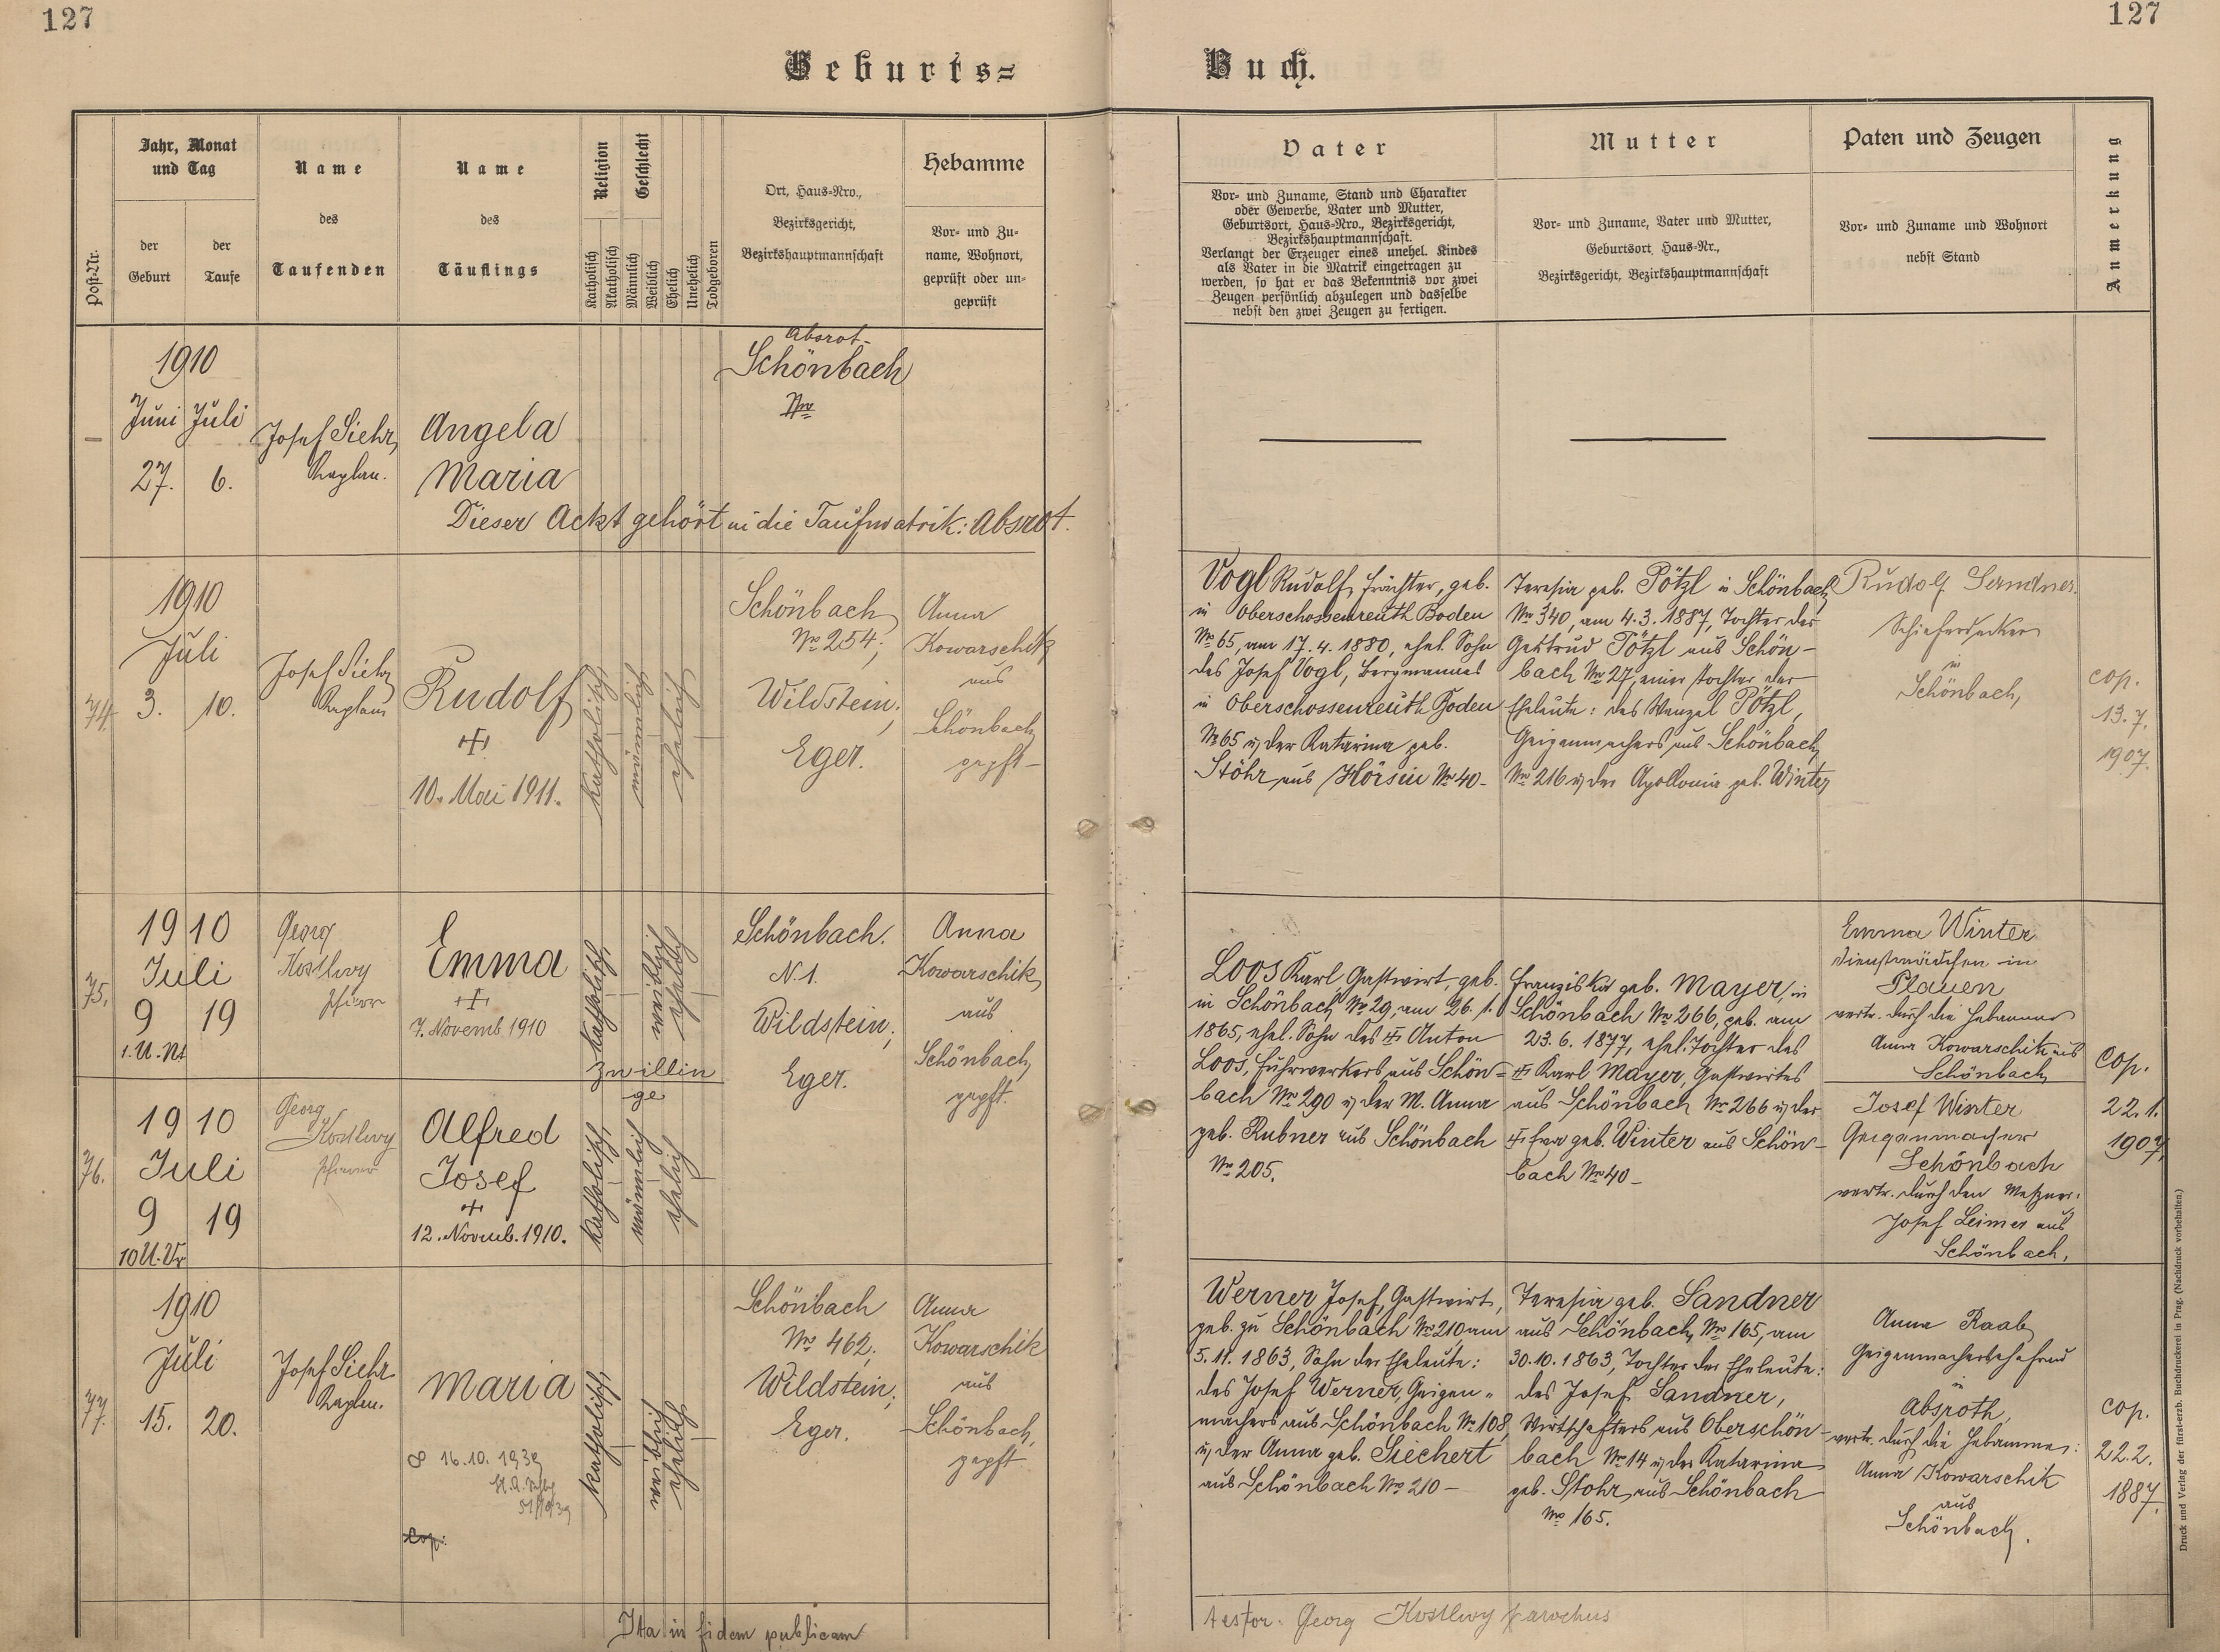 127
127
Geburts=
Buch.
Post-Nr.
Jahr, Monat
und Tag
der
Geburt
der
Taufe
Name
des
Taufenden
Name
des
Täuflings
Religion
Katholisch
Akatholisch
Geschlecht
Männlich
Weiblich
Ehelich
Unehelich
Todgeboren
Ort, Haus-Nro.,
Bezirksgericht,
Bezirkshauptmannschaft
Hebamme
Vor- und Zu-
name, Wohnort,
geprüft oder un-
geprüft
Vater
Vor- und Zuname, Stand und Charakter
oder Gewerbe, Vater und Mutter,
Geburtsort, Haus-Nro., Bezirksgericht,
Bezirkshauptmannschaft.
Verlangt der Erzeuger eines unehel. Kindes
als Vater in die Matrik eingetragen zu
werden, so hat er das Bekenntnis vor zwei
Zeugen persönlich abzulegen und dasselbe
nebst den zwei Zeugen zu fertigen.
Mutter
Vor- und Zuname, Vater und Mutter,
Geburtsort Haus-Nr.,
Bezirksgericht, Bezirkshauptmannschaft
Paten und Zeugen
Vor- und Zuname und Wohnort
nebst Stand
Anmerkung
–
1910
Juni Juli
27. 6.
Josef Siehr
Kaplan.
Angela
Maria
Absrot-
Schönbach
Nro
Dieser Ackt gehört in die Taufmatrik: Absrot.
74.
1910
Juli
3. 10.
Josef Siehr
Kaplan
Rudolf
+
10. Mai 1911.
katholisch
männlich
ehelich
Schönbach
No 254;
Wildstein;
Eger.
Anna
Kowarschik
aus
Schönbach
gepft-
Vogl Rudolf, Frächter, geb.
in Oberschossenreuth Boden
No 65, am 17.4.1880, ehel. Sohn
des Josef Vogl, Bergmannes
in Oberschossenreuth Boden
No 65 u. der Katarina geb.
Stöhr aus Hörsin No 40-
Teresia geb. Pötzl in Schönbach
No 340, am 4.3.1887, Tochter der
Gertrud Pötzl aus Schön-
bach No 27, einer Tochter der
Eheleute: des Wenzel Pötzl,
Geigenmachers aus Schönbach
No 216 u. der Apollonia geb. Winter
Rudolf Sandner
Schieferdecker
in
Schönbach,
cop.
13.7.
1907.
75.
1910
Juli
9 19
1. U. Nt
Georg
Kostlivy
Pfarrer
Emma
+
7. Novemb 1910
katholisch
weiblich
ehelich
Zwillin
ge
Schönbach.
N. 1.
Wildstein;
Eger.
Anna
Kowarschik
aus
Schönbach,
gepft.
Loos Karl, Gastwirt, geb.
in Schönbach No 29, am 26.1.
1865, ehel. Sohn des + Anton
Loos, Fuhrwerkers aus Schön=
bach No 290 u. der M. Anna
geb. Rubner aus Schönbach
No 205.
Franziska geb. Mayer, in
Schönbach No 266, geb. am
23.6.1877, ehel. Tochter des
+ Karl Mayer, Gastwirtes
aus Schönbach No 266 u. der
+ Eva geb. Winter aus Schön-
bach No 40-
Emma Winter
Dienstmädchen in
Plauen
vertr. durch die Hebamme
Anna Kowarschik aus
Schönbach
cop.
22.1.
1907.
76.
1910
Juli
9 19
10 U. Vr
Georg
Kostlivy
Pfarrer
Alfred
Josef
+
12. Novemb. 1910.
katholisch
männlich
ehelich
Josef Winter
Geigenmacher
Schönbach
vertr. durch den Meßner:
Josef Leimer aus
Schönbach.
77.
1910
Juli
15. 20.
Josef Siehr
Kaplan.
Maria
∞ 16.10.1939
cop:
katholisch
weiblich
ehelich
Schönbach
No 462;
Wildstein;
Eger.
Anna
Kowarschik
aus
Schönbach,
gepft
Werner Josef, Gastwirt,
geb. zu Schönbach No 210 am
5.11.1863, Sohn der Eheleute:
des Josef Werner, Geigen-
machers aus Schönbach No 108
u. der Anna geb. Siechert
aus Schönbach No 210-
Teresia geb. Sandner
aus Schönbach, No 165, am
30.10.1863, Tochter der Eheleute:
des Josef Sandner,
Wirtschafters aus Oberschön-
bach No 14 u. der Katarina
geb. Stöhr, aus Schönbach
No 165.
Anna Raab
Geigenmachersehefrau
in
Absroth,
vertr. durch die Hebamme:
Anna Kowarschik
aus
Schönbach.
cop.
22.2.
1887.
Ita in fidem publicam
testor. Georg Kostlivy parochus
Druck und Verlag der fürst-erzb. Buchdruckerei in Prag. (Nachdruck vorbehalten.)